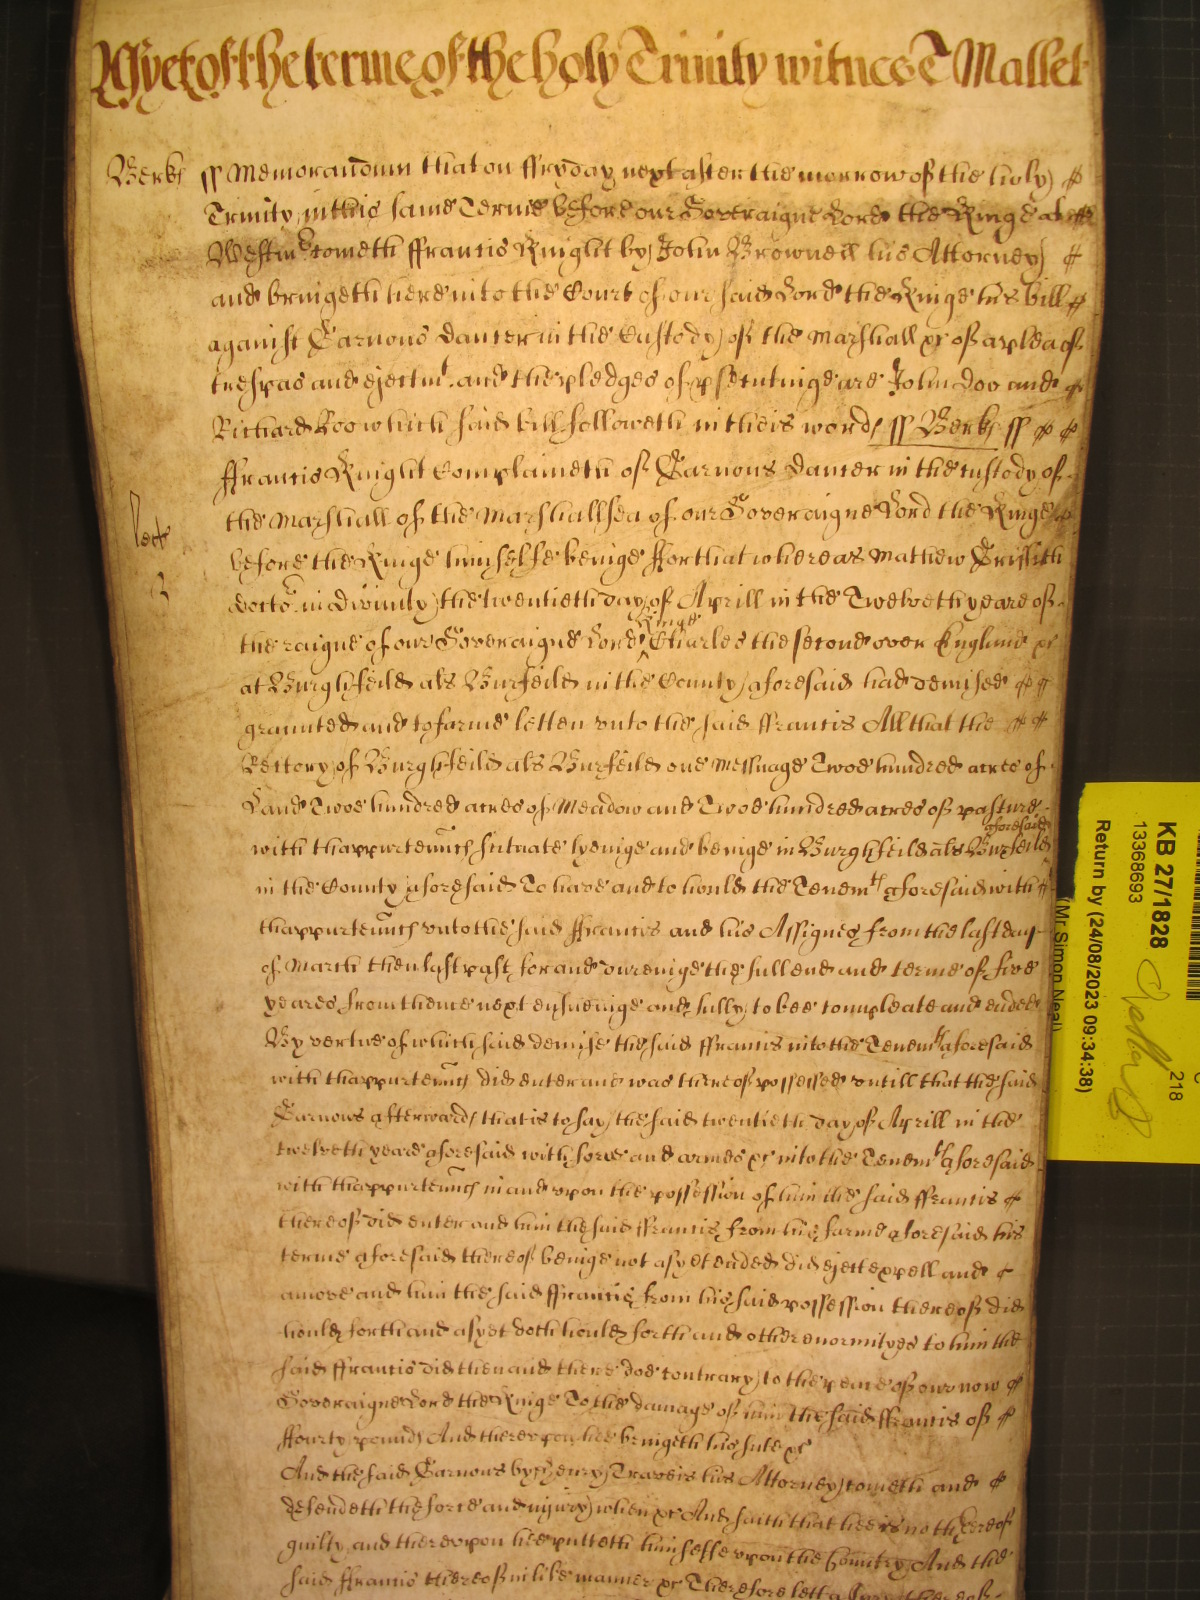 Yet of the terme of the holy Trinity witnes T Mallet
Berks ss Memorandum that on ffryday next after the morrow of the holy
Trinity in this same Terme before our Soveraigne Lord the Kinge at
Westmr cometh ffrancis Knight by John Brownell his Attorney
and bringeth here into the Court of our said Lord the Kinge his bill
against Carnous Danter in the Custody of the Marshall &c of a plea of
trespas and ejectmt and the pledges of psecutinge are John Doo and
Richard Roo which said bill followeth in theis words ss Berks ss
ffrancis Knight Complaineth of Carnous Danter in the custody of
the Marshall of the Marshallsea of our Soveraigne Lord the Kinge
before the Kinge himselfe beinge ffor that whereas Mathew Griffith
doctor in divinity the twentieth day of Aprill in the Twelveth yeare of
the raigne of our Soveraigne Lord Kinge Charles the second over England &c
at Burghfeild als Burfeild in the County aforesaid had demised
graunted and to farme letten unto the said ffrancis All that the
Rectory of Burghfeild als Burfeild one Messuage Twoe hundred acres of
Land Twoe hundred acres of Meadow and Twoe hundred acres of pasture
with thappurtennces scituate lyeinge and beinge in Burghfeild als Burfeild aforesaid
in the County aforesaid To have and to hould the Tenemts aforesaid with
thappurtennces unto the said ffrancis and his Assignes from the last day
of March then last past for and dureinge the full end and terme of five
yeares from thence next ensueinge and fully to bee compleate and ended
By vertue of which said demise the said ffrancis into the Tenemts aforesaid
with thappurtennces did enter and was thereof possessed untill that the said
Carnous afterwards that is to say the said twentieth day of Aprill in the
twelveth yeare aforesaid with force and armes &c into the Tenemts aforesaid
with thappurtennces in and upon the possession of him the said ffrancis
thereof did enter and him the said ffrancis from his farme aforesaid his
terme aforesaid thereof beinge not as yet ended did eject expell and
amove and him the said ffrancis from his said possession thereof did
hould forth and as yet doth hould forth and other enormityes to him the
said ffrancis did then and there doe contrary to the peace of our now
Soveraigne Lord the Kinge To the damage of him the said ffrancis of
ffourty pounds And thereupon hee bringeth his sute &c
And the said Carnous by Henry Travers his Attorney cometh and
defendeth the force and injury when &c And saith that hee is not thereof
guilty and thereupon hee putteth himselfe upon the Country And the
said ffrancis thereof in like manner &c Therefore lett a Jury thereof
KB 27/1828
13368693
Return by (24/08/2023 09:34:38)
(Mr Simon Neal)
218